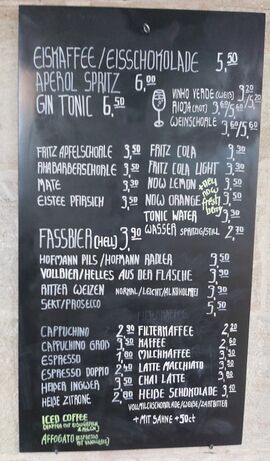 EISKAFFEE/EISSCHOKOLADE 5,50
APEROL SPRITZ 6,00
GIN TONIC 6,50
VINHO VERDE (WEIß) 3,20/5,20
RIOJA (ROT) 3,60/5,60
WEINSCHORLE 3,60/5,60
FRITZ APFELSCHORLE 3,50
RHABARBERSCHORLE 3,50
MATE 3,30
EISTEE PFIRSICH 3,50
FRITZ COLA 3,30
FRITZ COLA LIGHT 3,30
NOW LEMON 3,30
NOW ORANGE 3,30
TONIC WATER 3,30
WASSER SPRITZIG/STILL 2,70
new now fresh
FASSBIER (HELL) 3,90
HOFMANN PILS / HOFMANN RADLER 3,50
VOLLBIER/HELLES AUS DER FLASCHE 3,30
RITTER WEIZEN NORMAL/LEICHT/ALKOHOLFREI 3,90
SEKT/PROSECCO 5,50
CAPPUCHINO 2,90
CAPPUCHINO GROß 3,50
ESPRESSO
ESPRESSO DOPPIO
HEIßER INGWER
HEIßE ZITRONE
FILTERKAFFEE 2,20
KAFFEE 2,60
MILCHKAFFEE
LATTE MACCHIATO
CHAI LATTE
HEIßE SCHOKOLADE 3,10
VOLLMILCHSCHOKOLADE/WEIßE/ZARTBITTER
+ MIT SAHNE +50ct
ICED COFFEE
AFFOGATO (ESPRESSO
MIT VANILLEEIS)